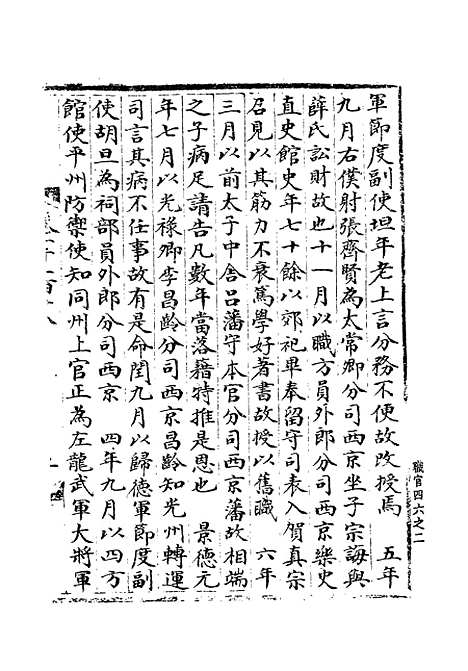 職官四六之二
軍節度副使坦年老上言分務不便故改授焉　五年
九月右僕射張齊賢為太常卿分司西京坐子宗誨與
薛氏訟財故也十一月以職方員外郎分司西京樂史
直史館史年七十餘以郊祀畢奉留守司表入賀真宗
召見以其筋力不衰篤學好著書故授以舊職　六年
三月以前太子中舍呂藩守本官分司西京藩故相端
之子病足請告凡數年當落籍特推是恩也　景德元
年七月以光祿卿李昌齡分司西京昌齡知光州轉運
司言其病不任事故有是命閏九月以歸德軍節度副
使胡旦為祠部員外郎分司西京　四年九月以四方
館使平州防禦使知同州上官正為左龍武軍大將軍